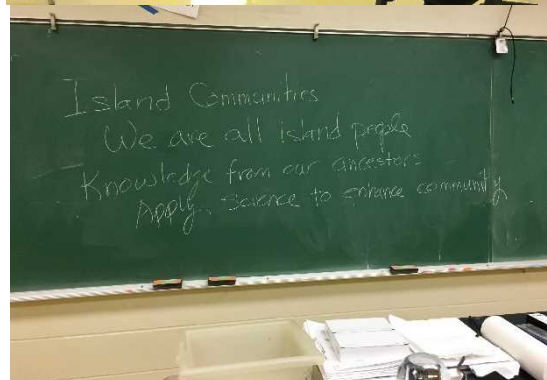 Island Communities
We are all island people
Knowledge from our ancestors
Apply science to enhance community